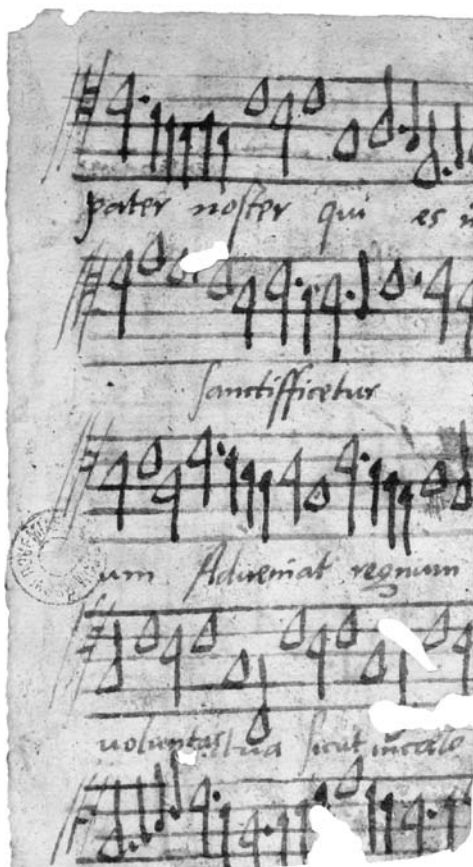 pater noster qui es
sanctifficetur
um Adveniat regnum
voluntas tua sicut in celo